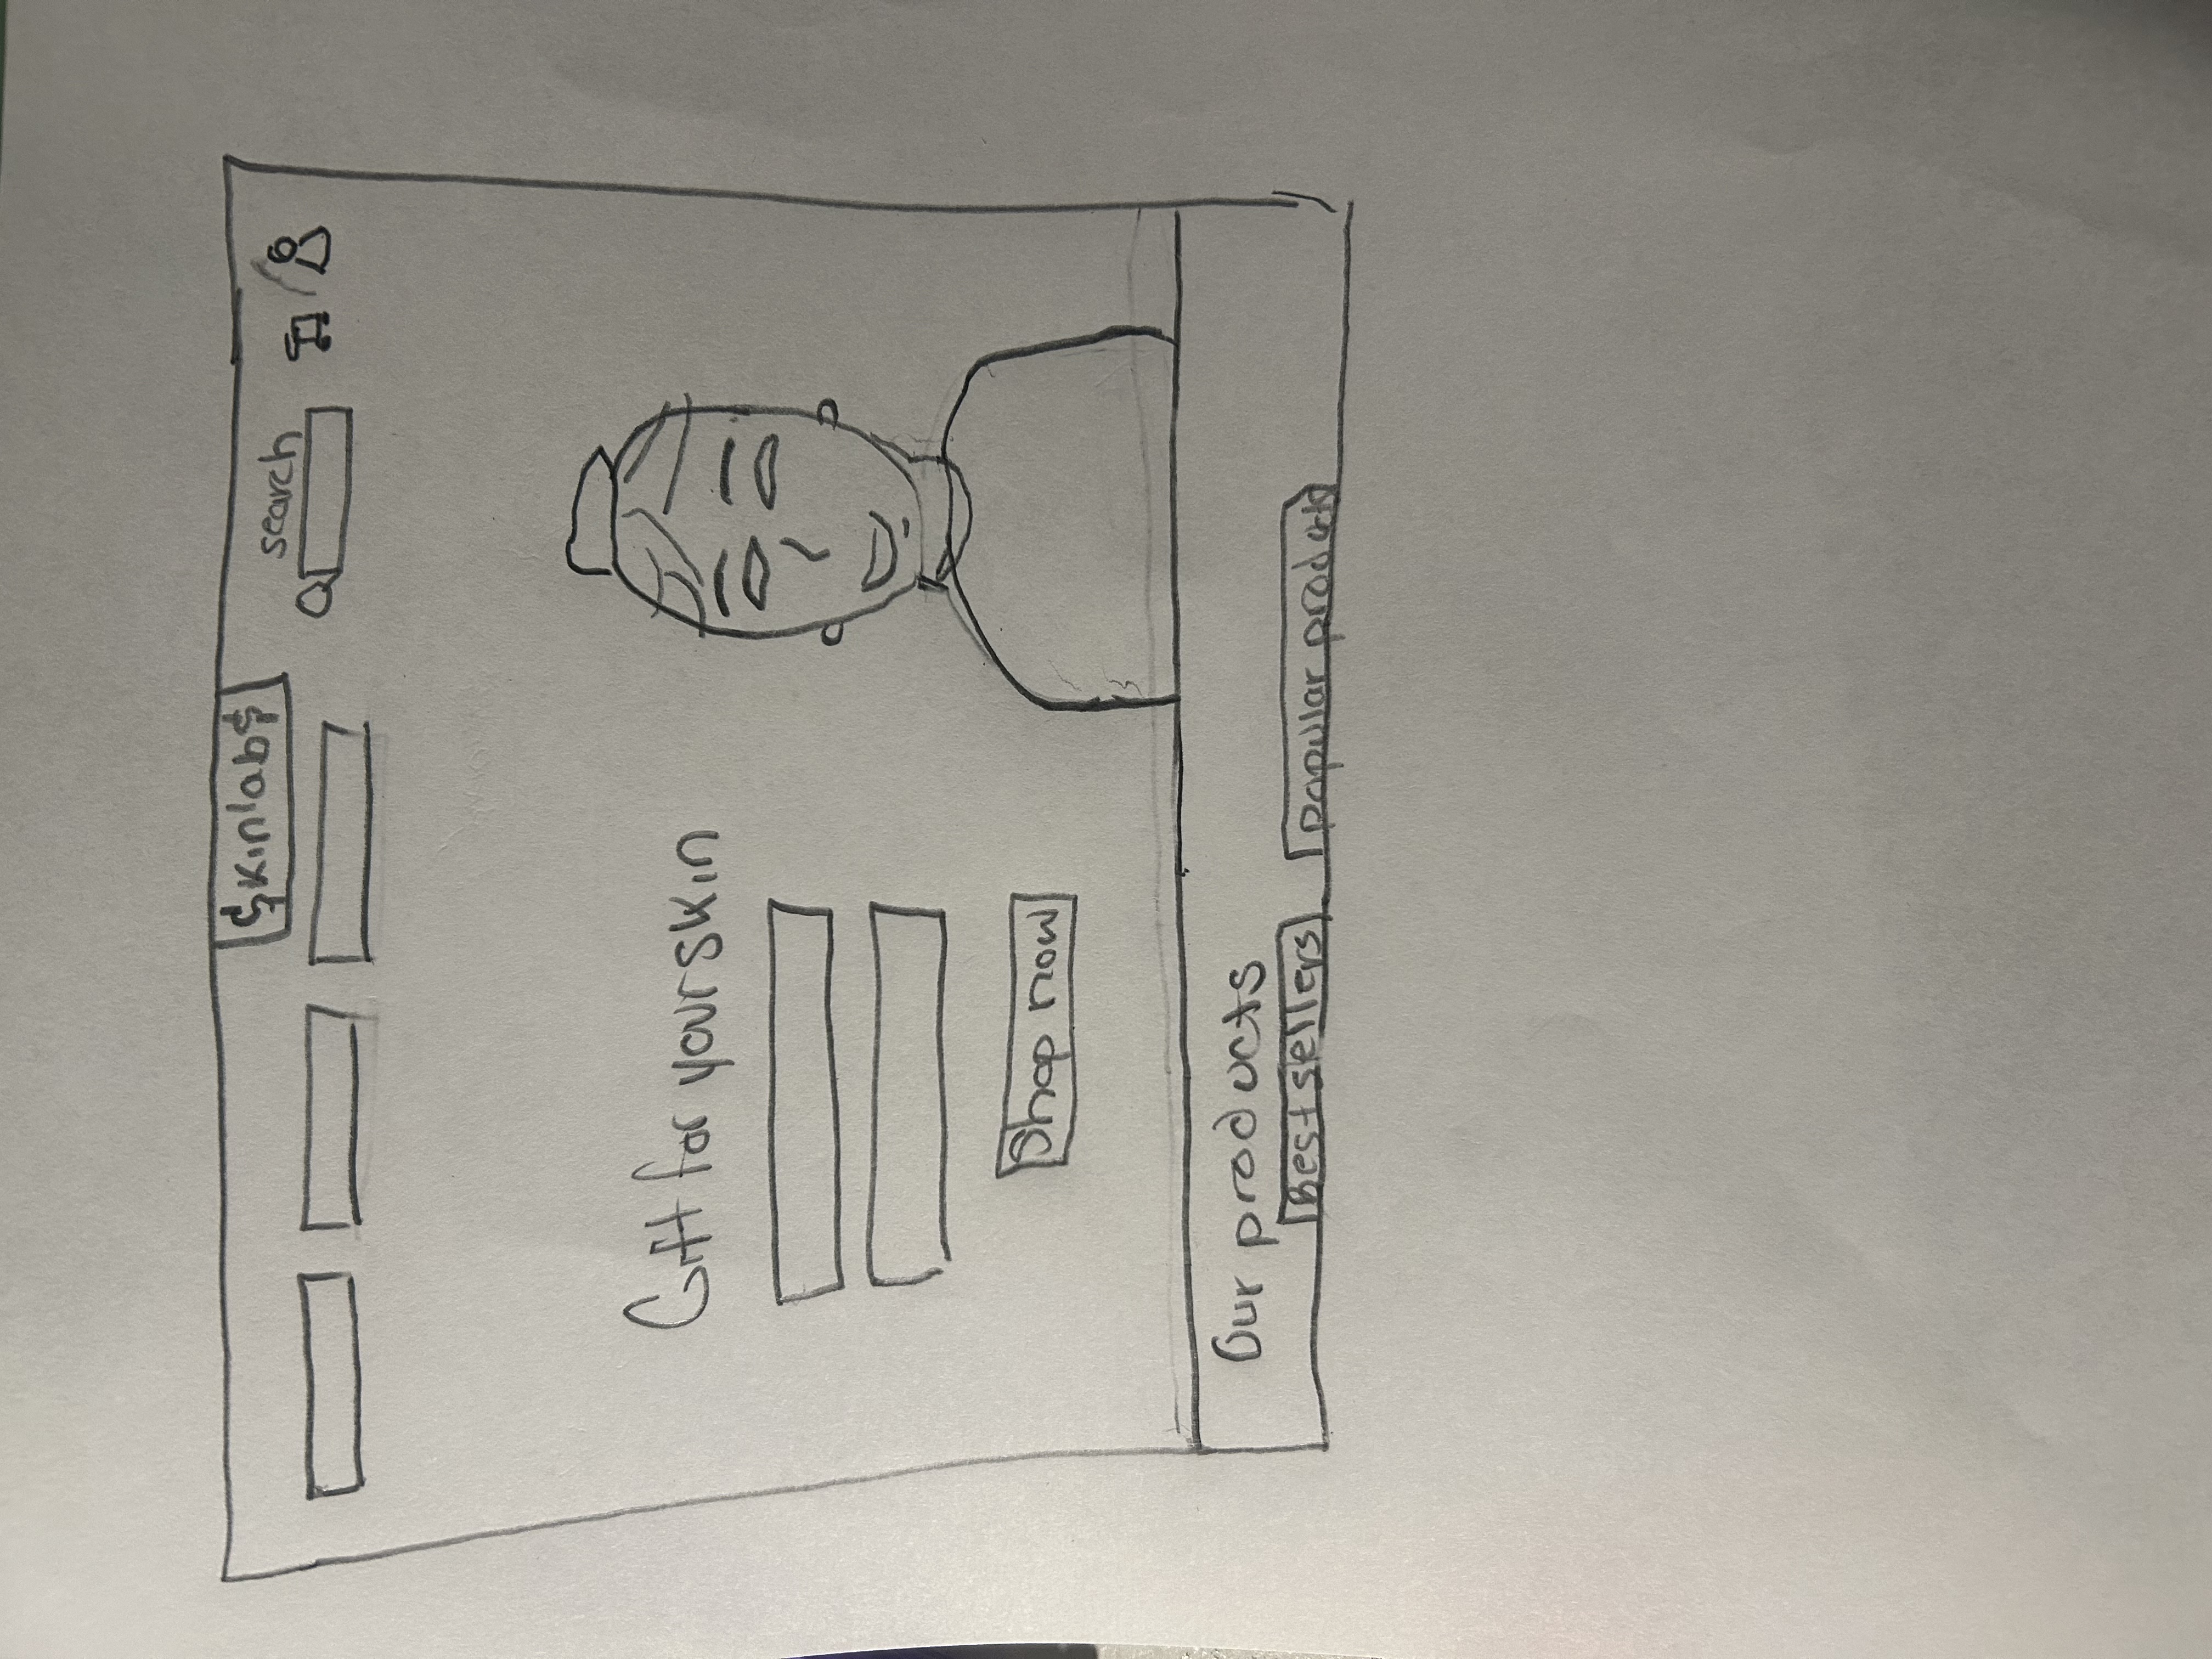 $kinlab$
search
Gift for your skin
Shop now
Our products
Best sellers
popular products